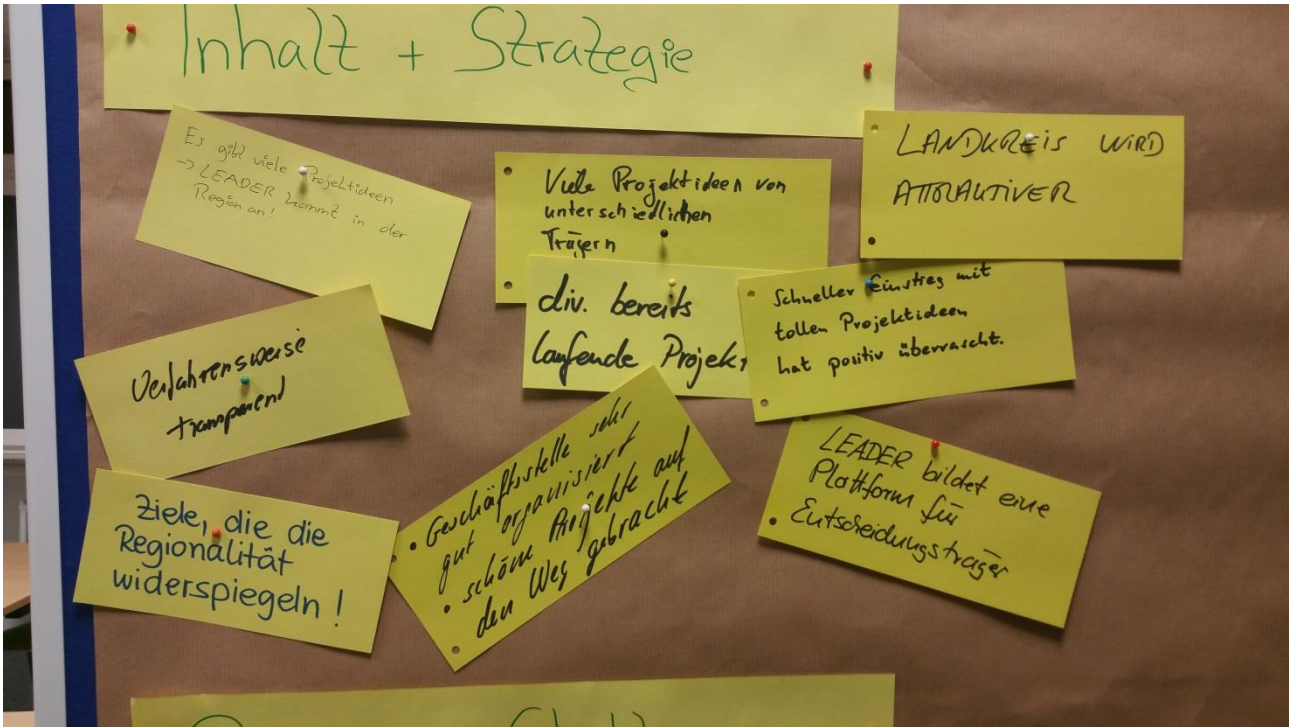 Inhalt + Strategie
Es gibt viele Projektideen
→ LEADER kommt in der
Region an!
Viele Projektideen von
unterschiedlichen
Trägern
LANDKREIS WIRD
ATTRAKTIVER
div. bereits
laufende Projek
Schneller Einstieg mit
tollen Projektideen
hat positiv überrascht.
Verfahrensweise
transparent
Ziele, die die
Regionalität
widerspiegeln!
• Geschäftsstelle sehr
gut organisiert
• schöne Projekte auf
den Weg gebracht
LEADER bildet eine
Plattform für
Entscheidungsträger